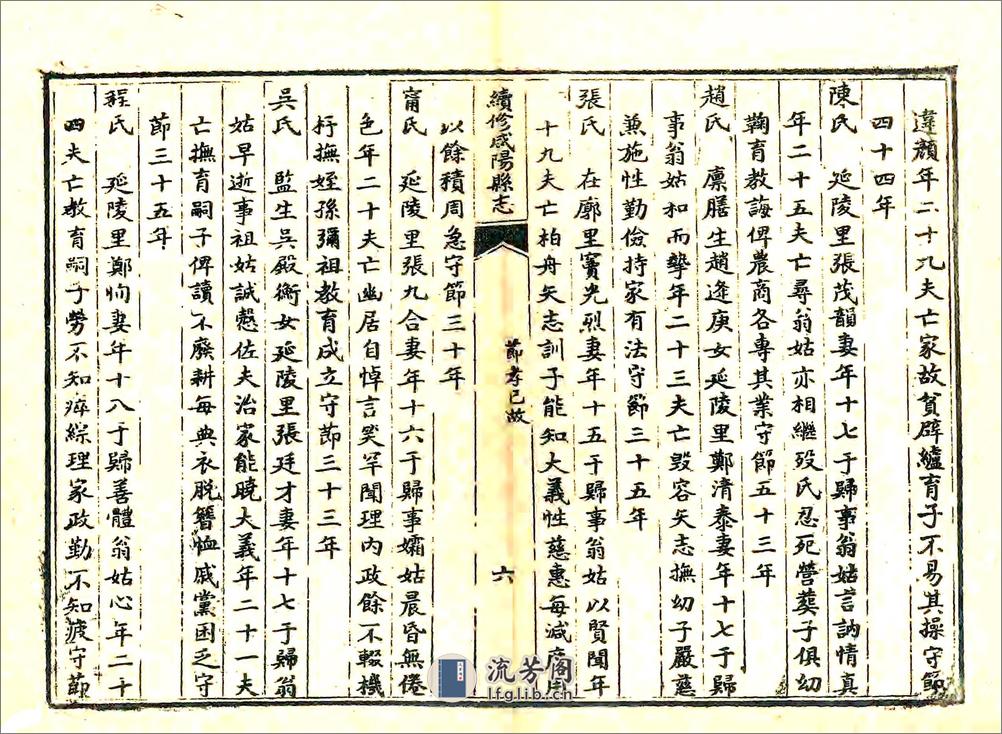 違顏年二十九夫亡家故貧辟纑育子不易其操守節
四十四年
陳氏　延陵里張茂韻妻年十七于歸事翁姑言訥情真
年二十五夫亡尋翁姑亦相繼歿氏忍死營葬子俱幼
鞠育教誨俾農商各專其業守節五十三年
趙氏　廩膳生趙逢庚女延陵里鄭清泰妻年十七于歸
事翁姑和而摯年二十三夫亡毀容矢志撫幼子嚴慈
兼施性勤儉持家有法守節三十五年
張氏　在廓里竇光烈妻年十五于歸事翁姑以賢聞年
十九夫亡柏舟矢志訓子能知大義性慈惠每減
續修咸陽縣志
節孝已故
六
以餘積周急守節三十年
甯氏　延陵里張九合妻年十六于歸事孀姑晨昏無倦
色年二十夫亡幽居自悼言笑罕聞理內政餘不輟機
杼撫姪孫彌祖教育成立守節三十三年
吳氏　監生吳殿衡女延陵里張廷才妻年十七于歸翁
姑早逝事祖姑誠慤佐夫治家能曉大義年二十一夫
亡撫育嗣子俾讀不廢耕每典衣脫簪恤戚黨困乏守
節三十五年
程氏　延陵里鄭恂妻年十八于歸善體翁姑心年二十
四夫亡教育嗣子勞不知瘁綜理家政勤不知疲守節
流芳阁
lfglib.cn